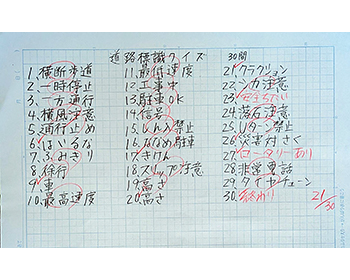 道路標識クイズ 30問
1. 横断歩道
2. 一時停止
3. 一方通行
4. 横風注意
5. 通行止め
6. はいるな
7. ふみきり
8. 徐行
9. 車
10. 最高速度
11. 最低速度
12. 工事中
13. 駐車OK
14. 信号
15. しん入禁止
16. ななめ駐車
17. きけん
18. スリップ注意
19. 高さ
20. 高さ
21. クラクション
22. シカ注意
23.
24. 落石注意
25. Uターン禁止
26. 災害対さく
27. ロータリーあり
28. 非常電話
29. タイヤチェーン
30. 終わり
21/30